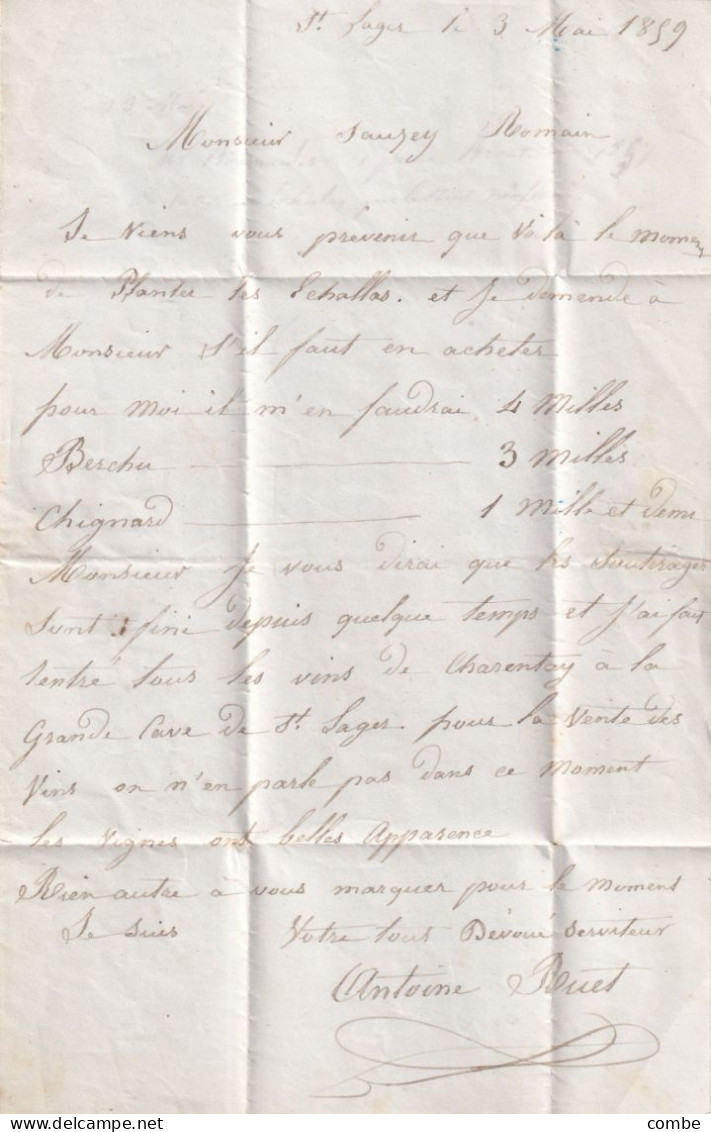 St. Lager le 3 Mai 1859
Monsieur Sauzey Romain
Je viens vous prevenir que voilà le moment
de Planter les Echallas. et Je demande à
Monsieur s'il faut en acheter
pour moi il m'en faudrai 4 Milles
Berchu 3 Milles
Chignard 1 Mille et demi
Monsieur Je vous dirai que les Soutirages
Sont fini depuis quelque temps et J'ai fait
rentré tous les vins de Charentay à la
Grande Cave de St. Lager. pour la Vente des
Vins on n'en parle pas dans ce Moment
les Vignes ont belles Apparence
Rien autre à vous marquer pour le moment
Je suis Votre tous Dévoué Serviteur
Antoine Ruet
DELCAMPE.NET
combe